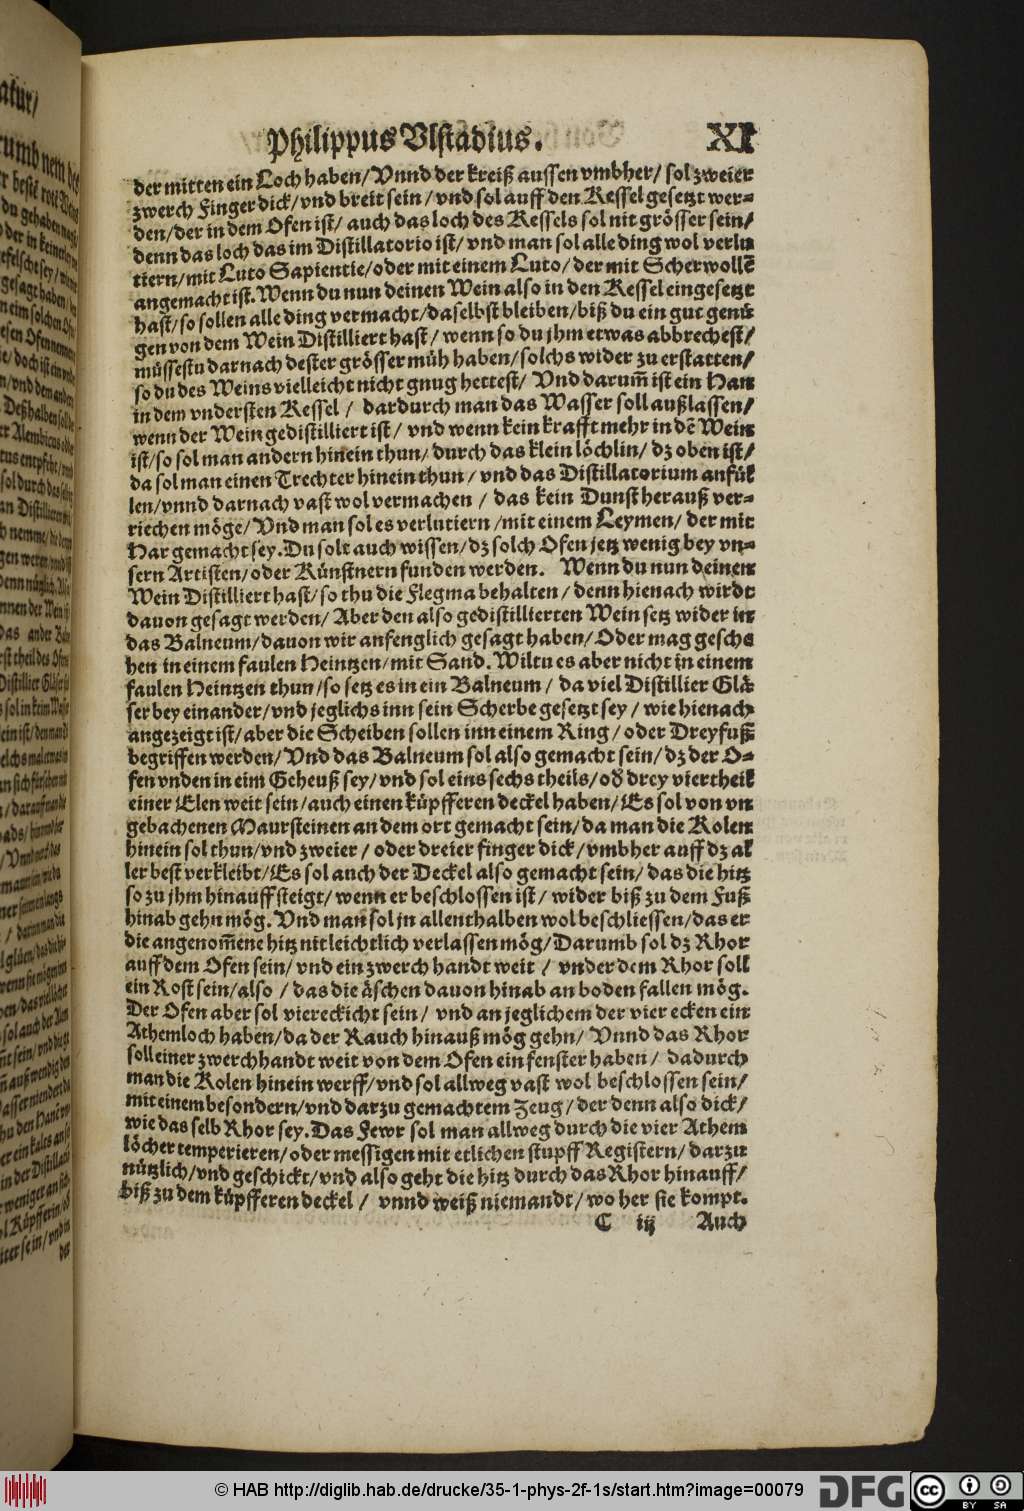 Philippus Vlstadius. XI
der mitten ein Loch haben/ Vnnd der kreiß aussen vmbher/ sol zweier
zwerch Finger dick/ vnd breit sein/ vnd sol auff den Kessel gesetzt wer⸗
den/ der in dem Ofen ist/ auch das loch des Kessels sol nit grösser sein/
denn das loch das im Distillatorio ist/ vnd man sol alle ding wol verlu
tiern/ mit Luto Sapientie/ oder mit einem Luto/ der mit Scherwollē
angemacht ist. Wenn du nun deinen Wein also in den Kessel eingesetzt
hast/ so sollen alle ding vermacht/ daselbst bleiben/ biß du ein gut genü
gen von dem Wein Distilliert hast/ wenn so du jhm etwas abbrechest/
müssestu darnach dester grösser müh haben/ solchs wider zu erstatten/
so du des Weins vielleicht nicht gnug hettest/ Vnd darum̄ ist ein Han
in dem vndersten Kessel / dardurch man das Wasser soll außlassen/
wenn der Wein gedistilliert ist/ vnd wenn kein krafft mehr in dē Wein
ist/ so sol man andern hinein thun/ durch das klein löchlin/ dz oben ist/
da sol man einen Trechter hinein thun/ vnd das Distillatorium anfül
len/ vnnd darnach vast wol vermachen / das kein Dunst herauß ver⸗
riechen möge/ Vnd man sol es verlutiern/ mit einem Leymen/ der mit
Har gemacht sey. Du solt auch wissen/ dz solch Ofen jetz wenig bey vn⸗
sern Artisten/ oder Künstnern funden werden. Wenn du nun deinen
Wein Distilliert hast/ so thu die Flegma behalten/ denn hienach wirdt
dauon gesagt werden/ Aber den also gedistillierten Wein setz wider in
das Balneum/ dauon wir anfenglich gesagt haben/ Oder mag geschs
hen in einem faulen Heintzen/ mit Sand. Wiltu es aber nicht in einem
faulen Heintzen thun/ so setz es in ein Balneum / da viel Distillier Glä
ser bey einander/ vnd jeglichs inn sein Scherbe gesetzt sey / wie hienach
angezeigt ist/ aber die Scheiben sollen inn einem Ring/ oder Dreyfuß
begriffen werden/ Vnd das Balneum sol also gemacht sein/ dz der O⸗
fen vnden in eim Geheuß sey/ vnd sol eins sechs theils/ od̄ drey viertheil
einer Elen weit sein/ auch einen küpfferen deckel haben/ Es sol von vn
gebachenen Maursteinen an dem ort gemacht sein/ da man die Kolen
hinein sol thun/ vnd zweier / oder dreier finger dick/ vmbher auff dz al
ler best verkleibt/ Es sol auch der Deckel also gemacht sein/ das die hitz
so zu jhm hinauff steigt/ wenn er beschlossen ist/ wider biß zu dem Fuß
hinab gehn mög. Vnd man sol jn allenthalben wol beschliessen/ das er
die angenom̄ene hitz nit leichtlich verlassen mög/ Darumb sol dz Rhor
auff dem Ofen sein/ vnd ein zwerch handt weit / vnder dem Rhor soll
ein Rost sein/ also / das die äschen dauon hinab an boden fallen mög.
Der Ofen aber sol viereckicht sein/ vnd an jeglichem der vier ecken ein
Athemloch haben/ da der Rauch hinauß mög gehn/ Vnnd das Rhor
soll einer zwerchhandt weit von dem Ofen ein fenster haben/ dadurch
man die Kolen hinein werff/ vnd sol allweg vast wol beschlossen sein/
mit einem besondern/ vnd darzu gemachtem Zeug/ der denn also dick/
wie das selb Rhor sey. Das Fewr sol man allweg durch die vier Athem
löcher temperieren/ oder messigen mit etlichen stupff Registern/ darzu
nützlich/ vnd geschickt/ vnd also geht die hitz durch das Rhor hinauff/
biß zu dem küpfferen deckel / vnnd weiß niemandt/ wo her sie kompt.
C iij Auch
© HAB http://diglib.hab.de/drucke/35-1-phys-2f-1s/start.htm?image=00079
DFG
cc BY SA